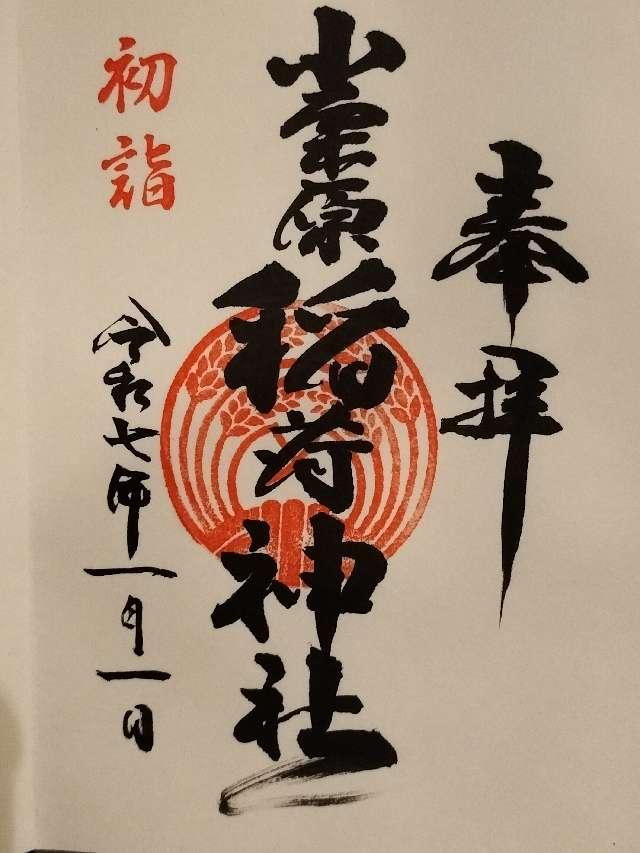 奉拝
小栗原稲荷神社
初詣
令和七年一月一日